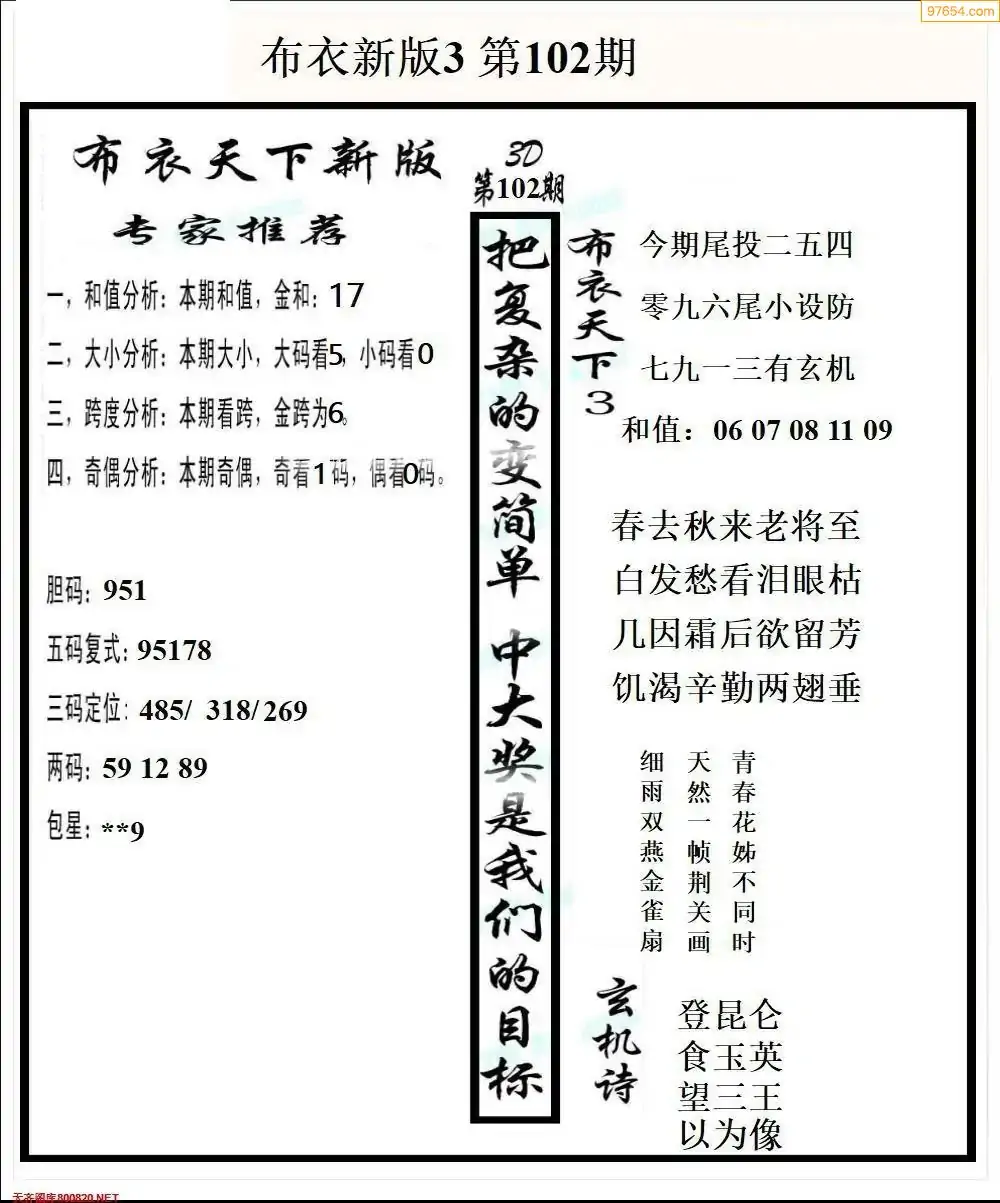 97654.com
布衣新版3 第102期
布衣天下新版
专家推荐
一，和值分析：本期和值，金和：17
二，大小分析：本期大小，大码看5，小码看0
三，跨度分析：本期看跨，金跨为6。
四，奇偶分析：本期奇偶，奇看1码，偶看0码。
胆码：951
五码复式：95178
三码定位：485/ 318/ 269
两码：59 12 89
包星：**9
3D
第102期
把复杂的变简单 中大奖是我们的目标
布衣天下3
今期尾投二五四
零九六尾小设防
七九一三有玄机
和值：06 07 08 11 09
春去秋来老将至
白发愁看泪眼枯
几因霜后欲留芳
饥渴辛勤两翅垂
青春花姊不同时
天然一帧荆关画
细雨双燕金雀扇
玄机诗
登昆仑
食玉英
望三王
以为像
天齐图库800820.NET